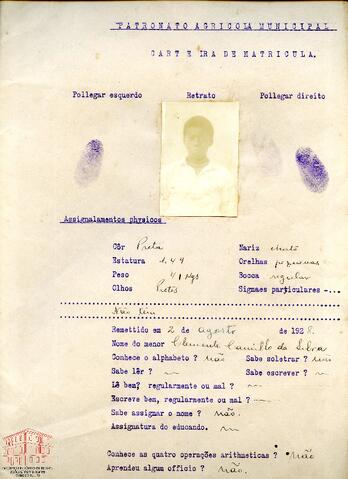 PATRONATO AGRICOLA MUNICIPAL
CARTEIRA DE MATRICULA.
Pollegar esquerdo Retrato Pollegar direito
Assignalamentos physicos
Côr Preta Nariz chato
Estatura 1.49 Orelhas pequenas
Peso 41 Kgs Bocca regular
Olhos Pretos Signaes particulares -...
Não tem
Remettido em 2 de agosto de 1928.
Nome do menor Clemente Camillo da Silva
Conhece o alphabeto? não Sabe soletrar? não
Sabe lêr? Sabe escrever?
Lê bem? regularmente ou mal?
Escreve bem, regularmente ou mal?-
Sabe assignar o nome? não.
Assignatura do educando.
Conhece as quatro operações arithmeticas? não
Aprendeu algum officio? não.